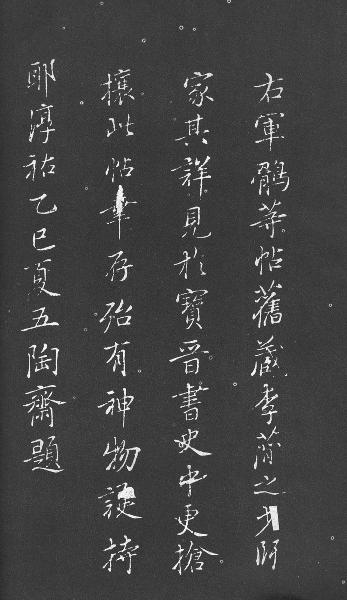 右軍鶻等帖舊藏李蕳之才所
家其詳見於寶晉書史中更搶
攘此帖隼存殆有神物護持
耶淳祐乙巳夏五陶齋題